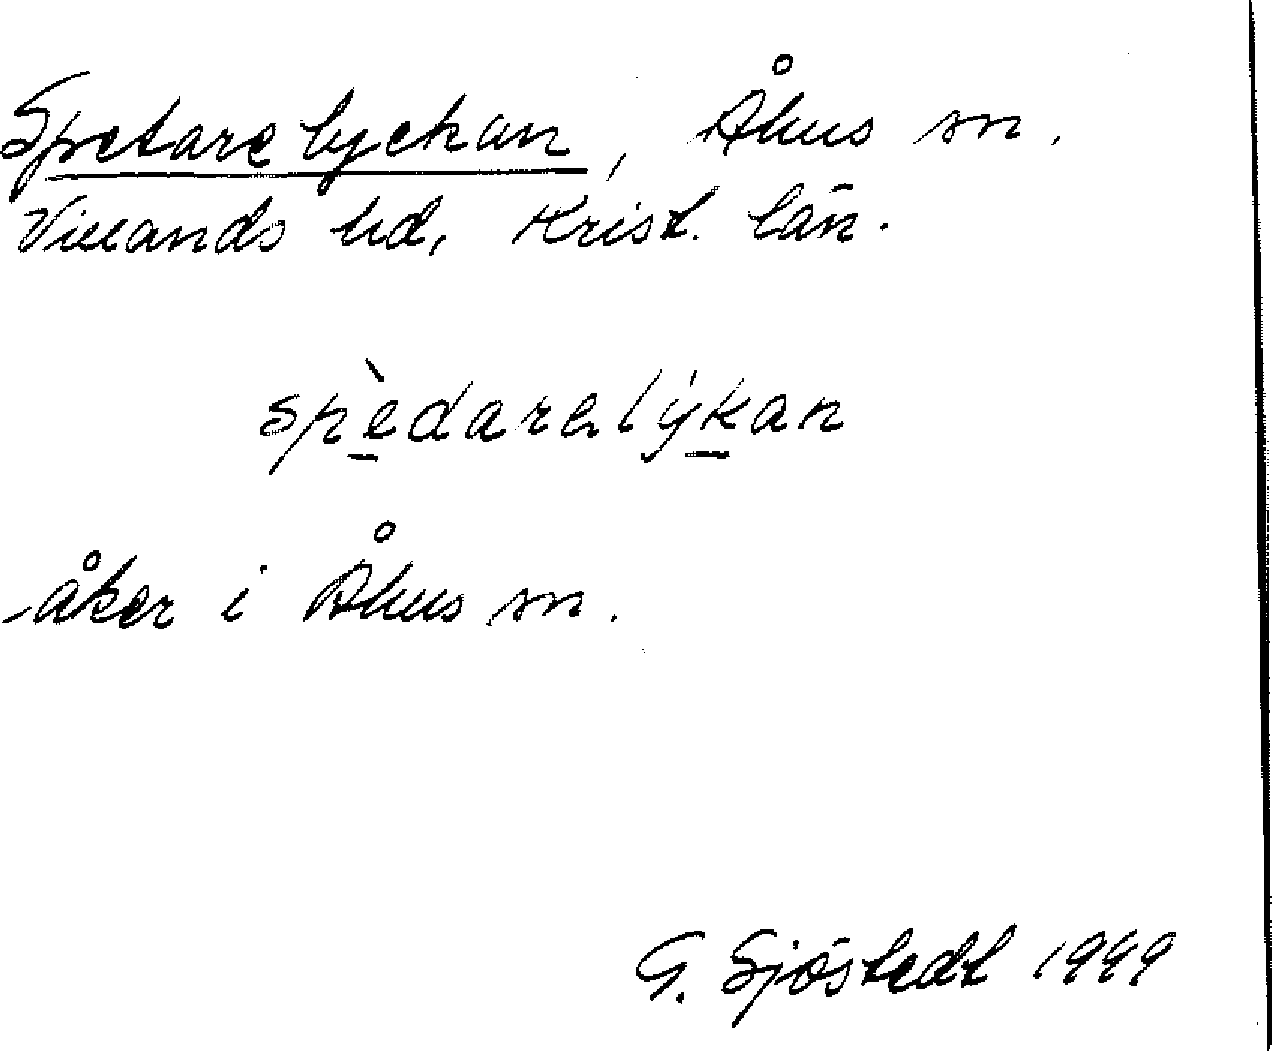 Spetarelyckan, Åhus sn.
Villands hd, Krist. län.
spèdarelýkan
åker i Åhus sn.
G. Sjöstedt 1949